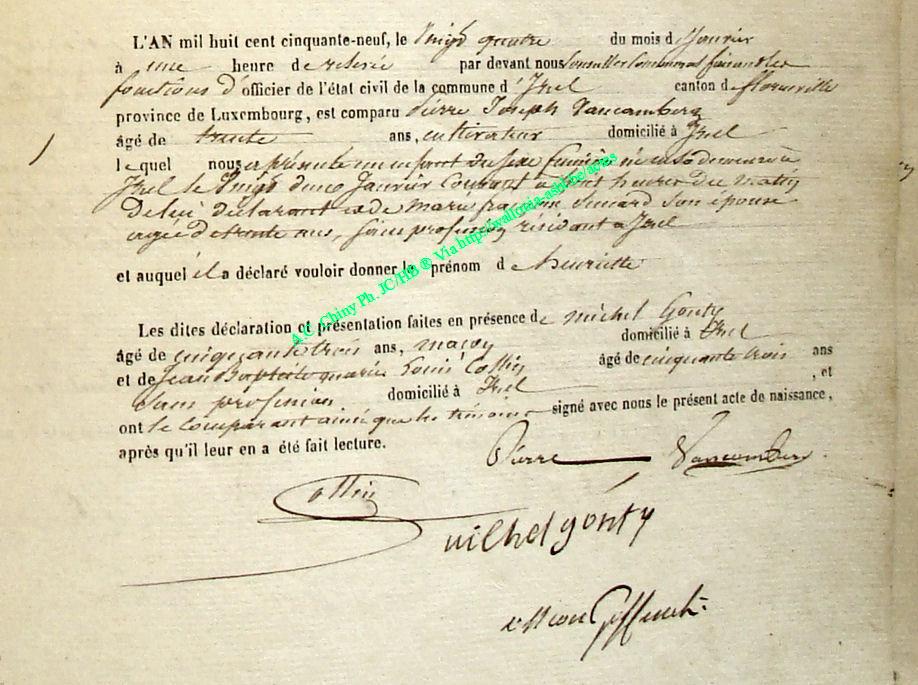 L'AN mil huit cent cinquante-neuf, le Vingt quatre du mois de Janvier
à une heure de relevée par devant nous Conseiller Communal faisant les
fonctions d'officier de l'état civil de la commune d'Izel canton de florenville
province de Luxembourg, est comparu Pierre Joseph Vancomberg
âgé de trente ans, cultivateur domicilié à Izel
lequel nous a présenté un enfant du sexe féminin né en sa demeure à
Izel le Vingt deux Janvier Courant à huit heures du matin
De lui déclarant et de Marie Suzard Son épouse
agée de trente ans, Sans profession résidant à Izel
et auquel il a déclaré vouloir donner le prénom de henriette
Les dites déclaration et présentation faites en présence de michel Gonty
âgé de cinquante trois ans, maçon domicilié à Izel
et de Jean Baptiste marie Louis Collin âgé de cinquante trois ans
Sans profession domicilié à Izel , et
ont le Comparant ainsi que les témoins signé avec nous le présent acte de naissance,
après qu'il leur en a été fait lecture.
Pierre Vancomber
Collin
Michel gonty
A.C. Chiny Ph. JC/HB ® Via http://wallonia-asbl.be/actes